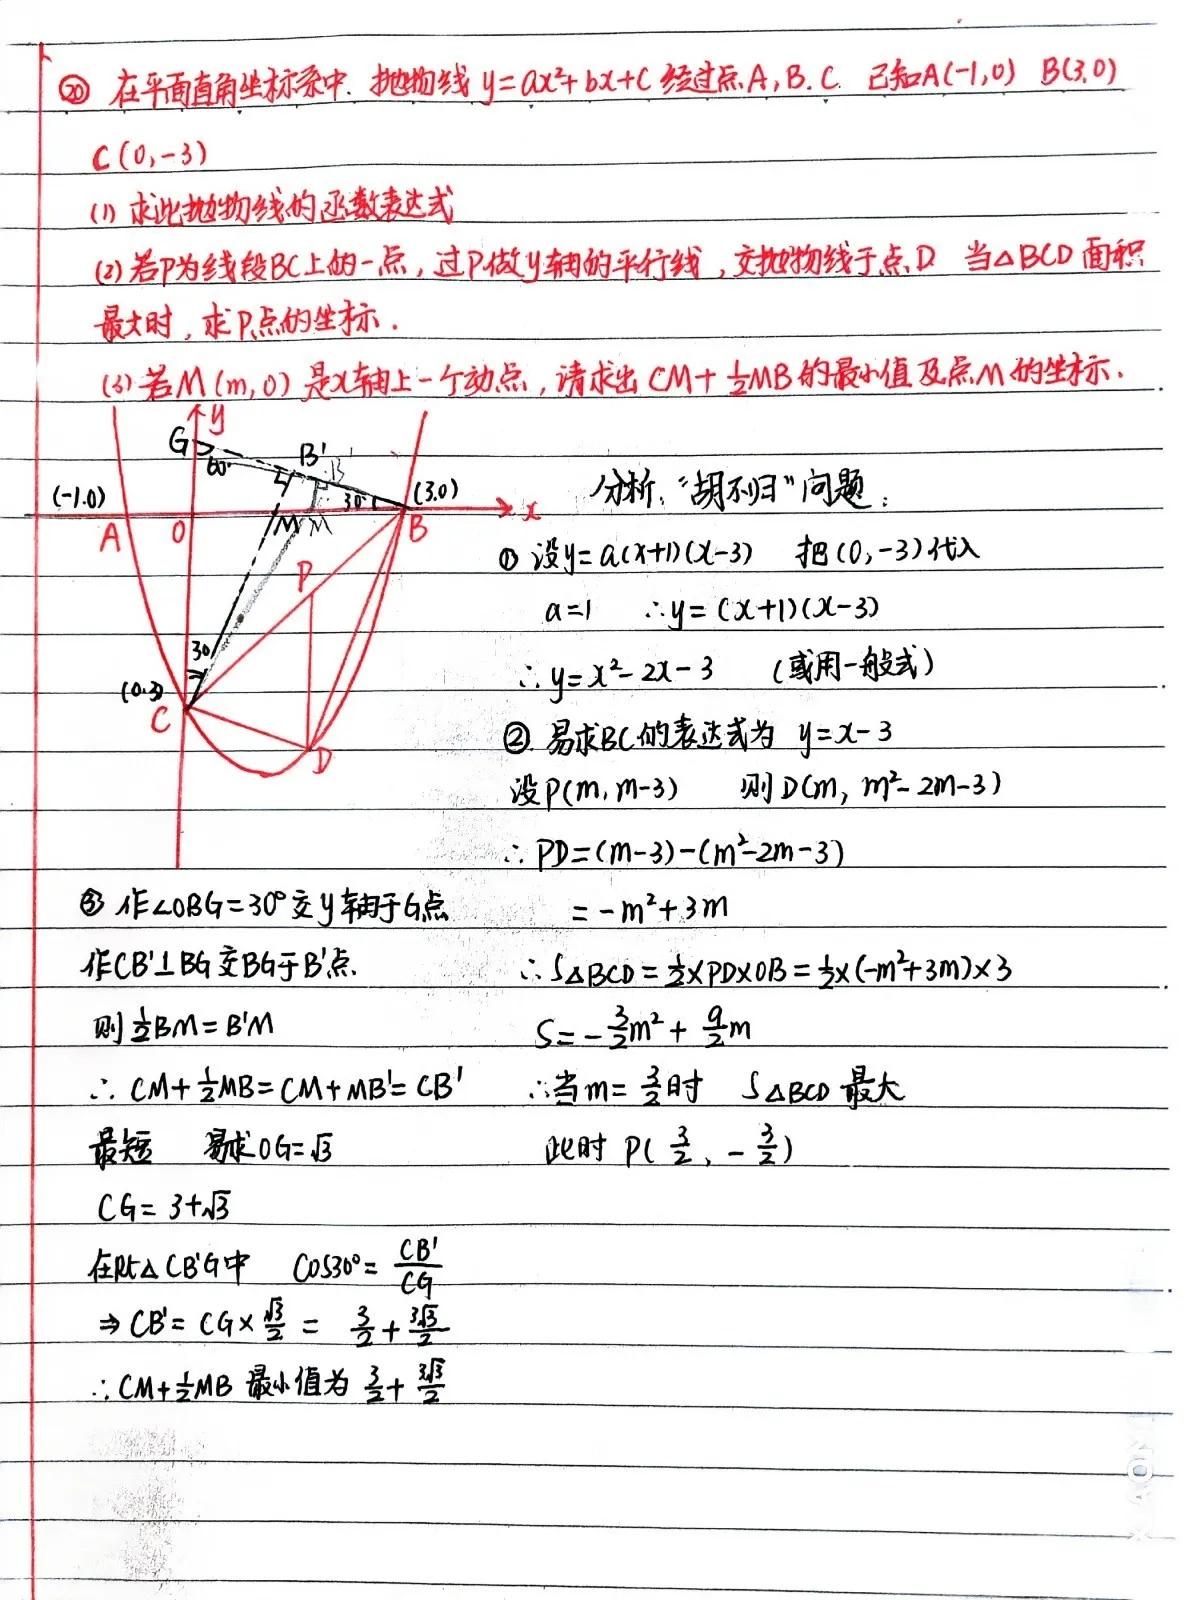 ⑳ 在平面直角坐标系中. 抛物线 y=ax²+bx+C 经过点A,B.C. 已知A(-1,0) B(3,0)
C(0,-3)
(1) 求此抛物线的函数表达式
(2) 若P为线段BC上的一点,过P做y轴的平行线,交抛物线于点D 当△BCD面积
最大时,求P点的坐标.
(3) 若M(m,0)是x轴上一个动点,请求出 CM+½MB的最小值及点M的坐标.
y
G
60°
B'
B'
(-1.0)
30°
(3.0)
A
O
M
M
B
x
P
30
(0.3)
C
D
分析:“胡不归”问题:
① 设y=a(x+1)(x-3) 把(0,-3)代入
a=1 ∴y=(x+1)(x-3)
∴y=x²-2x-3 (或用一般式)
② 易求BC的表达式为 y=x-3
设P(m,m-3) 则D(m, m²-2m-3)
∴PD=(m-3)-(m²-2m-3)
=-m²+3m
∴S△BCD=½×PD×OB=½×(-m²+3m)×3
S=-3/2m²+9/2m
∴当m=3/2时 S△BCD最大
此时 P(3/2、-3/2)
③ 作∠OBG=30°交y轴于G点
作CB'⊥BG交BG于B'点.
则½BM=B'M
∴CM+½MB=CM+MB'=CB'
最短 易求OG=√3
CG=3+√3
在Rt△CB'G中 COS30°=CB'/CG
⇒CB'=CG×√3/2=3/2+3√3/2
∴CM+½MB 最小值为 3/2+3√3/2